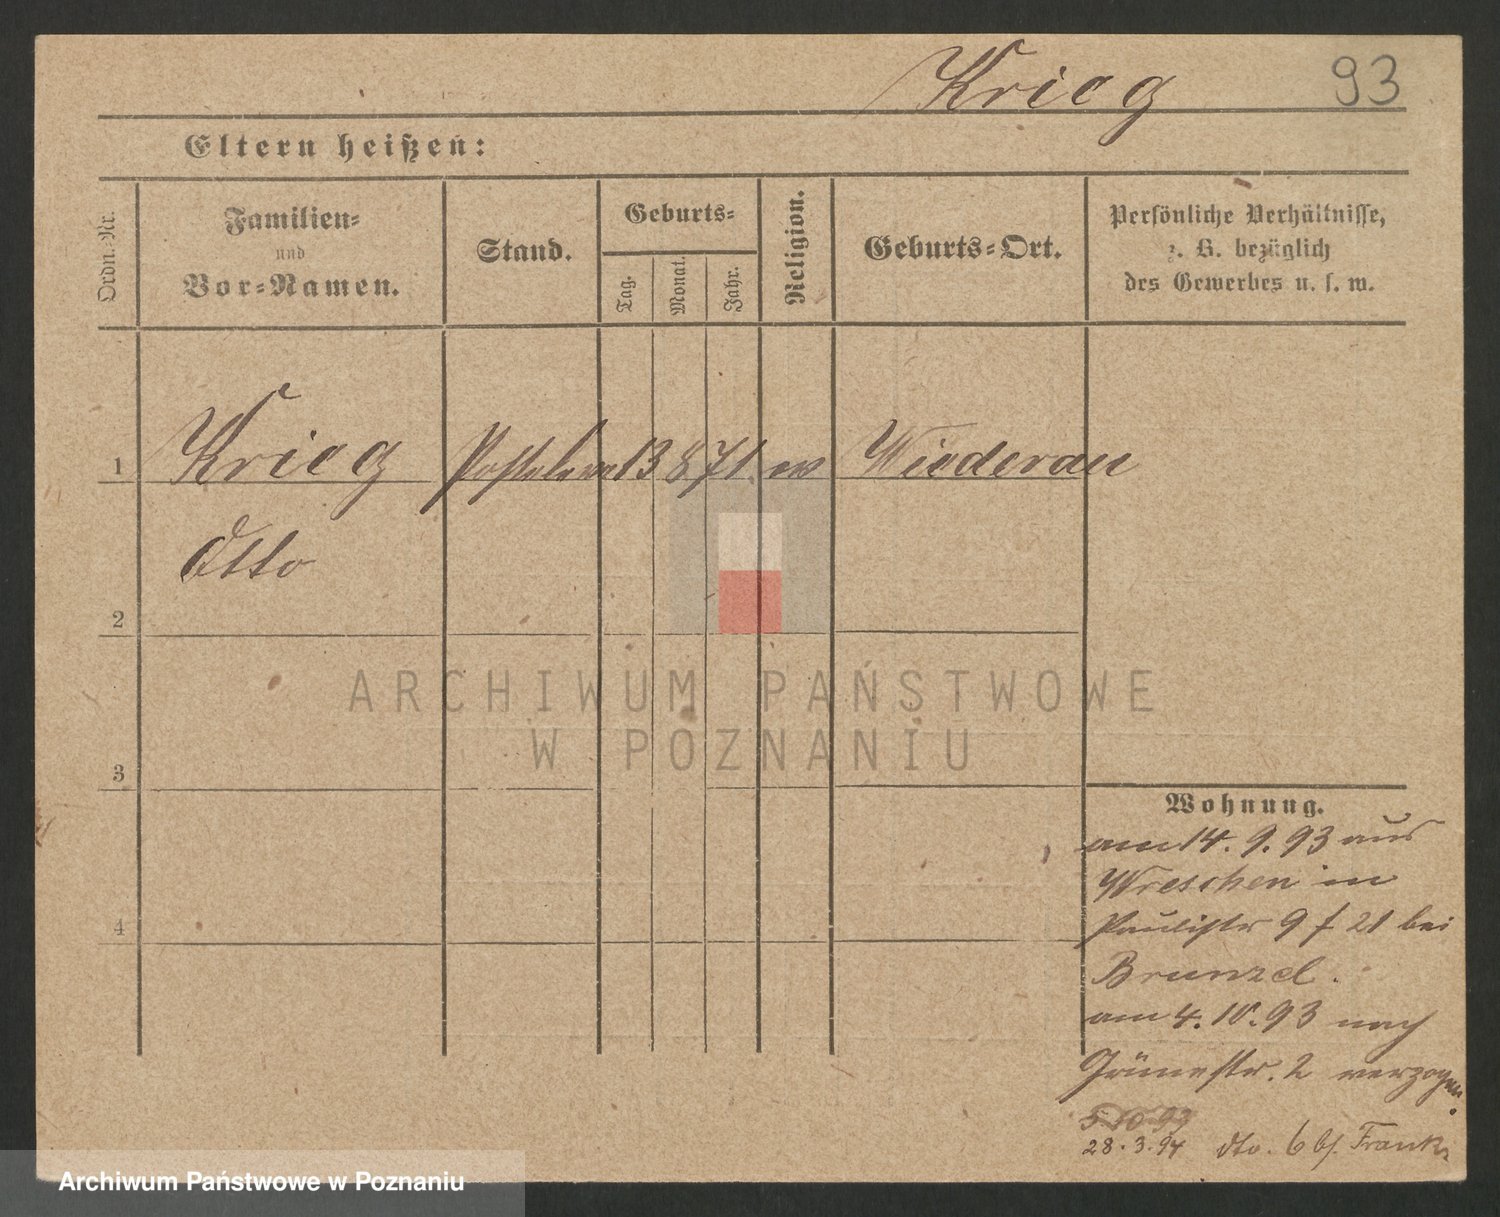 Krieg 93
Eltern heißen:
Ordn.-Nr.
Familien-
und
Vor-Namen.
Stand.
Geburts-
Tag.
Monat.
Jahr.
Religion.
Geburts-Ort.
Persönliche Verhältnisse,
z. B. bezüglich
des Gewerbes u. s. w.
1 Krieg 13 8 71. ev Wiederau
Otto
2
ARCHIWUM PAŃSTWOWE
W POZNANIU
3
Wohnung.
am 14. 9. 93 aus
Wreschen in
Paulistr 9 f 21 bei
Brunzel.
4
am 4. 10. 93 nach
Grünestr. 2 verzogen.
5 10 93
28.3.94 dto. 6 b/. Frank
Archiwum Państwowe w Poznaniu